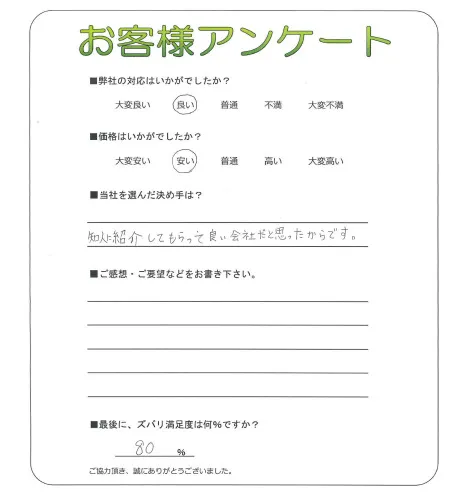 お客様アンケート
■弊社の対応はいかがでしたか？
大変良い 良い 普通 不満 大変不満
■価格はいかがでしたか？
大変安い 安い 普通 高い 大変高い
■当社を選んだ決め手は？
知人に紹介してもらって良い会社だと思ったからです。
■ご感想・ご要望などをお書き下さい。
■最後に、ズバリ満足度は何%ですか？
80 %
ご協力頂き、誠にありがとうございました。